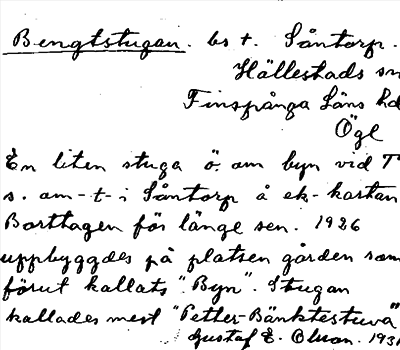 Bengtstugan. bs t. Såntorp.
Hällestads sn
Finspånga Läns hd
Ögl
En liten stuga ö. om byn vid T
s. am-t-i Såntorp å ek-kartan
Borttagen för länge sen. 1926
uppbyggdes på platsen gården som
förut kallats "Byn". Stugan
kallades mest "Petter-Bänktestuva"
Gustaf E. Olson. 1931